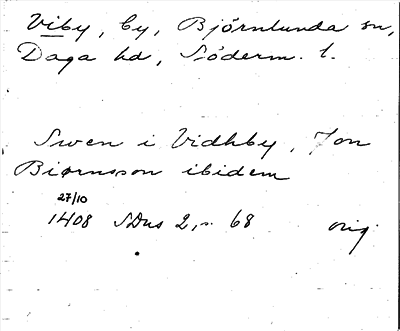 Viby, by, Björnlunda sn,
Daga hd, Söderm. l.
Swen i Vidhby, Jon
Biørnsson ibidem
27/10
1408 SDns 2, s. 68 orig.